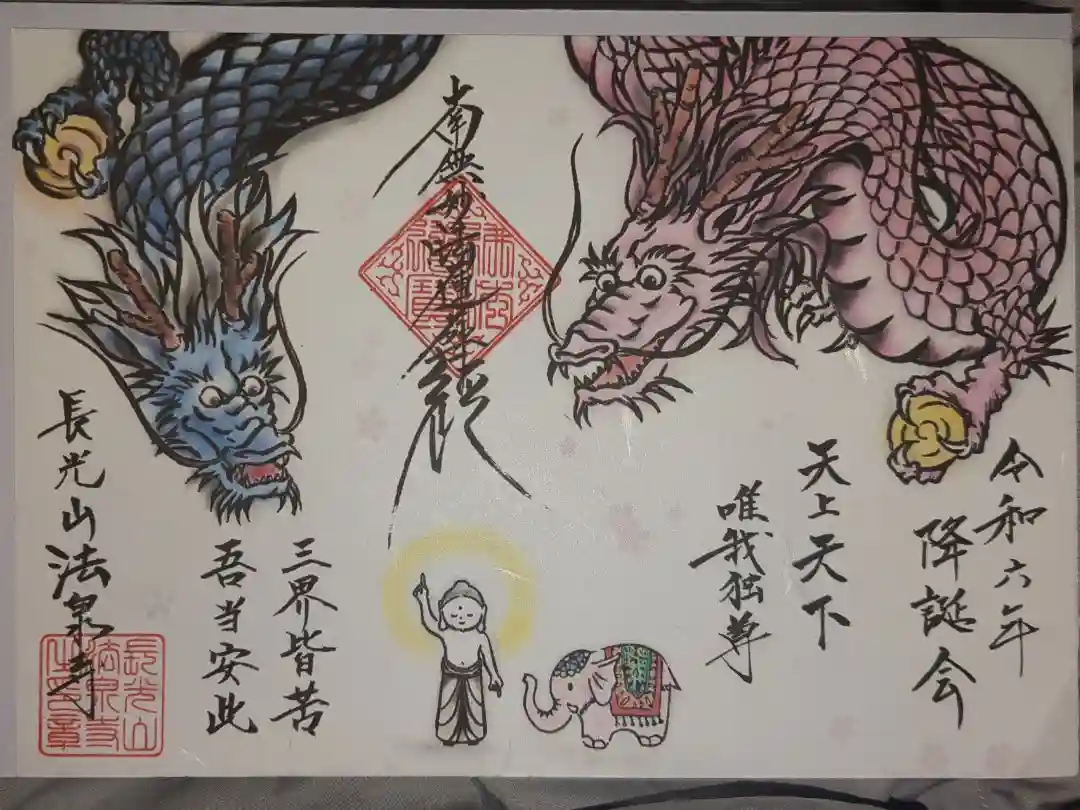 令和六年
降誕会
天上天下
唯我独尊
南無妙法蓮華経
三界皆苦
吾当安此
長光山法泉寺
長光山
法泉寺
之印章